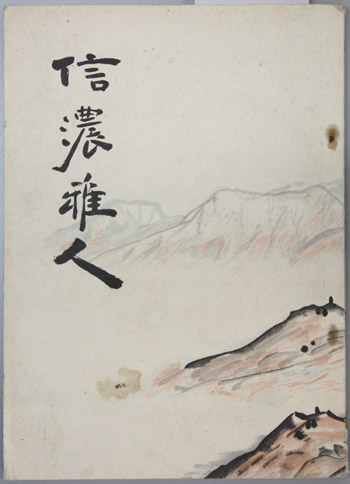 信濃雅人